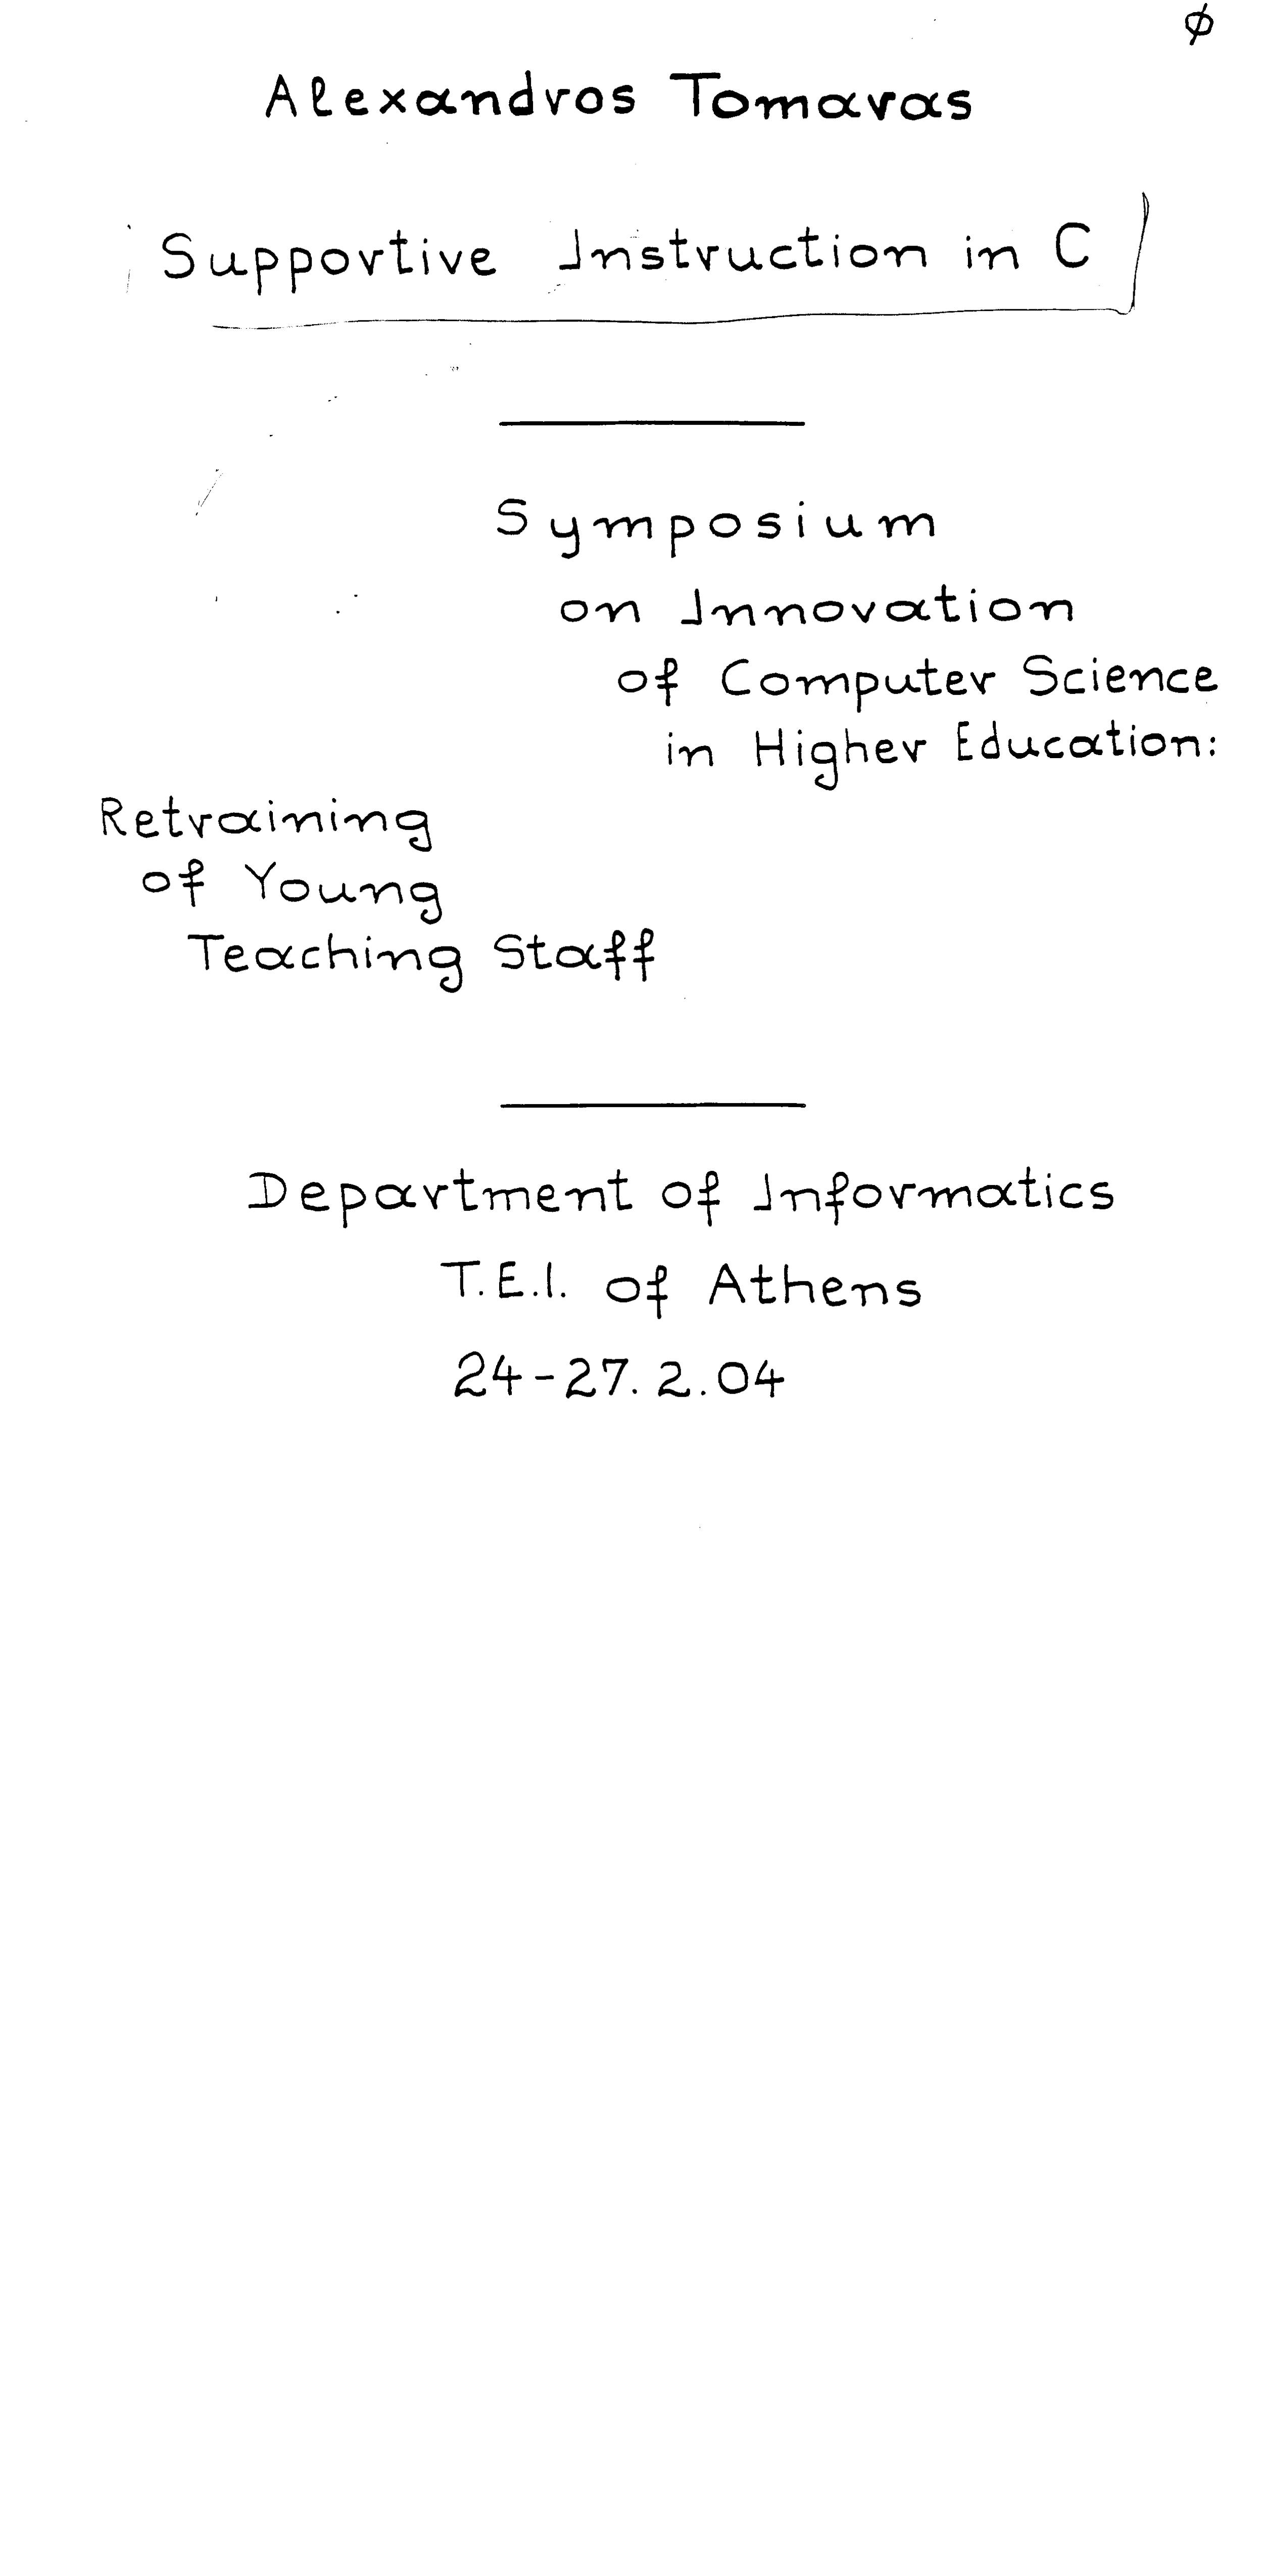 φ
Alexandros Tomaras
Supportive Instruction in C
Symposium
on Innovation
of Computer Science
in Higher Education:
Retraining
of Young
Teaching Staff
Department of Informatics
T.E.I. of Athens
24-27.2.04